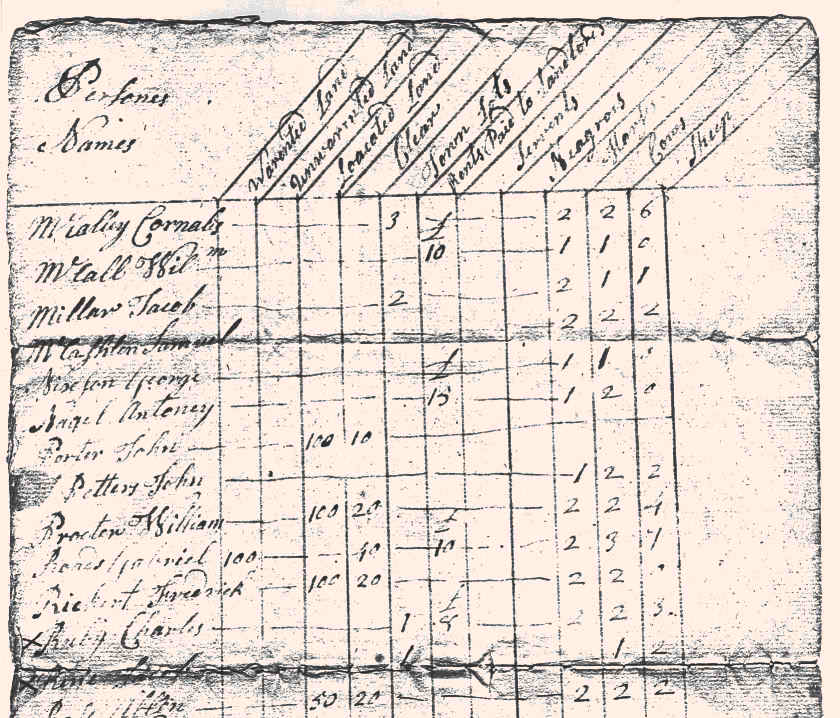 Persones
Names
Warented Land
Unwarrented Land
Loacated Land
Clear
Town Lots
Rents Paid to Landlords
Servents
Neagrors
Horses
Cows
Sheep
3 £ 2 2 6
McCall Wilm 10 1 1 0
Millar Jacob 2 2 1 1
Samuel 2 2 2
George £ 1 1
Nagel Antoney 15 1 2 0
Porter John 100 10
Petters John 1 2 2
Procter William 100 20 2 2 4
Gabriel 100 40 £ 10 2 3 7
Rickert Frederick 100 20 2 2
x Ruby Charles 1 £ 8 2 2 3
1 1 2
50 20 2 2 2